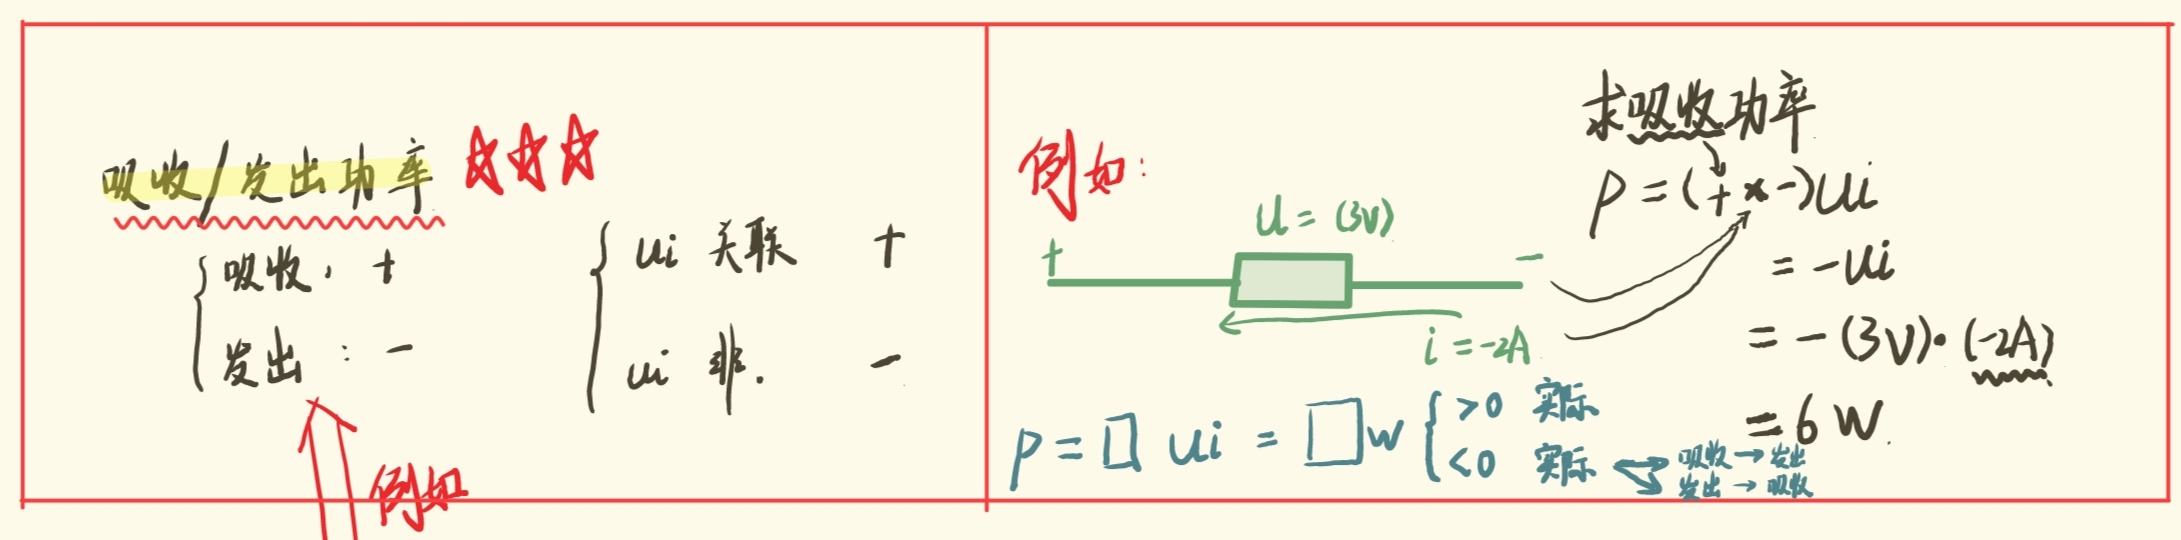 吸收/发出功率 ☆☆☆
吸收: +
发出: -
ui 关联 +
ui 非. -
例如
例如:
+ u = (3V) -
i = -2A
求吸收功率
P = (+ × -)ui
= -ui
= -(3V)·(-2A)
= 6 W.
P = □ ui = □ W
>0 实际
<0 实际
吸收 → 发出
发出 → 吸收